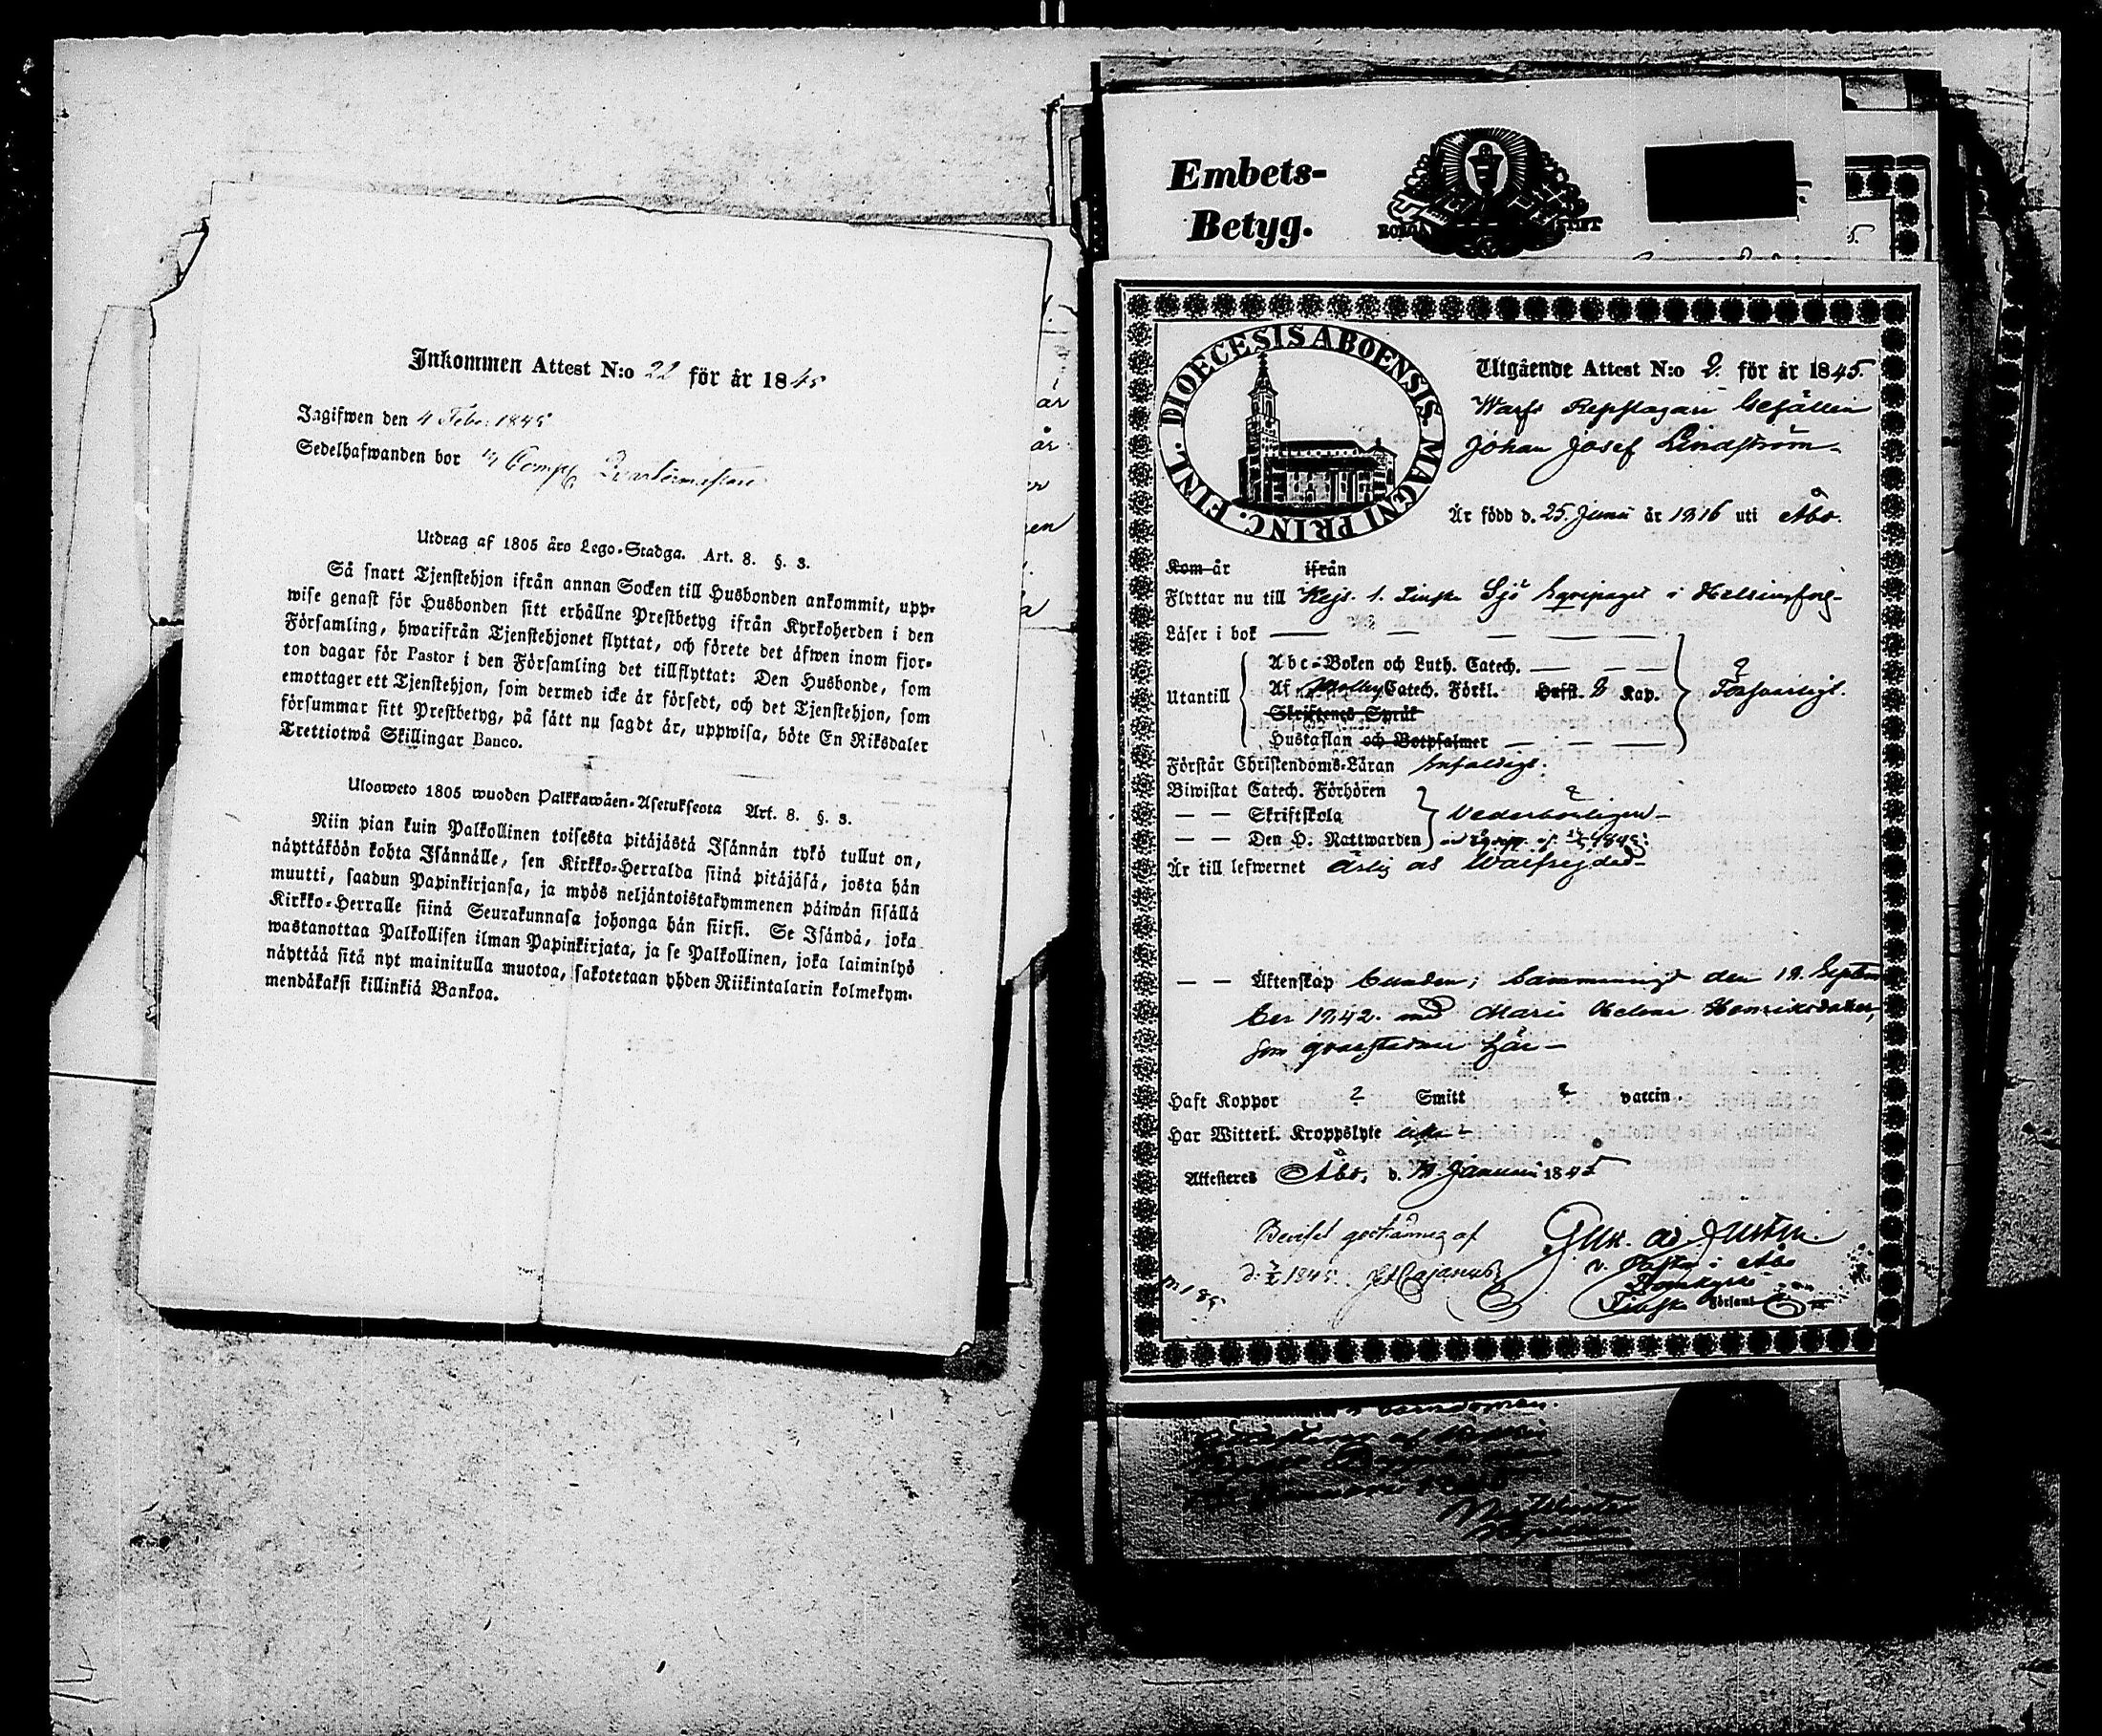 Inkommen Attest N:o 22 för år 1845
Ingifwen den 4 Febr. 1845
Sedelhafwanden bor Comp.
Utdrag af 1805 års Lego-Stadga. Art. 8. §. 3.
Så snart Tjenstehjon ifrån annan Socken till Husbonden ankommit, upp-
wise genast för Husbonden sitt erhållne Prestbetyg ifrån Kyrkoherden i den
Församling, hwarifrån Tjenstehjonet flyttat, och förete det äfwen inom fjor-
ton dagar för Pastor i den Församling det tillflyttat: Den Husbonde, som
emottager ett Tjenstehjon, som dermed icke är försedt, och det Tjenstehjon, som
försummar sitt Prestbetyg, på sätt nu sagdt är, uppwisa, böte En Riksdaler
Trettiotwå Skillingar Banco.
Uloosweto 1805 wuoden Palkkawäen-Asetuksesta Art. 8. §. 3.
Niin pian kuin Palkollinen toisesta pitäjästä Isännän tykö tullut on,
näyttäköön kohta Isännälle, sen Kirkko-Herralda siinä pitäjäsä, josta hän
muutti, saadun Papinkirjansa, ja myös neljäntoistakymmenen päiwän sisällä
Kirkko-Herralle siinä Seurakunnasa johonga hän siirsi. Se Isändä, joka
wastanottaa Palkollisen ilman Papinkirjata, ja se Palkollinen, joka laiminlyö
näyttää sitä nyt mainitulla muotoa, sakotetaan yhden Riikintalarin kolmekym-
mendäkaksi killinkiä Bankoa.
Embets-
Betyg.
DIOECESIS ABOENSIS. MAGNI PRINC. FINL.
Utgående Attest N:o 2. för år 1845.
Warfs Repslagare Gesällen
Johan Josef Lindström
Är född d. 25. Junii år 1816 uti Åbo.
Kom år ifrån
Flyttar nu till Kejs. 1. Finska Sjö Equipaget i Helsingfors
Läser i bok
Utantill
Abc-Boken och Luth. Catech.
Af Catech. Förkl. Hufst. Kap. Försvarligt.
Skriftenes Språk
Hustaflan och Botpsalmer
Förstår Christendoms-Läran Enfaldigt.
Biwistat Catech. Förhören
— — Skriftskola Vederbörligen
— — Den H. Nattwarden
Är till lefwernet ärlig och Wälfrejdad
— — Äktenskap bunden; Sammanvigd den 18. Septem
ber 1842. med Maria Helena Henriksdotter,
som qvarstadnar här
Haft Koppor ? Smitt ? vaccin.
Har Witterl. Kroppslyte icke
Attesteras Åbo, d. Januari 1845
Beviset godkännes af
1845. Cajanus
v. Pastor i Åbo
Domkyrko
Finska Församl.